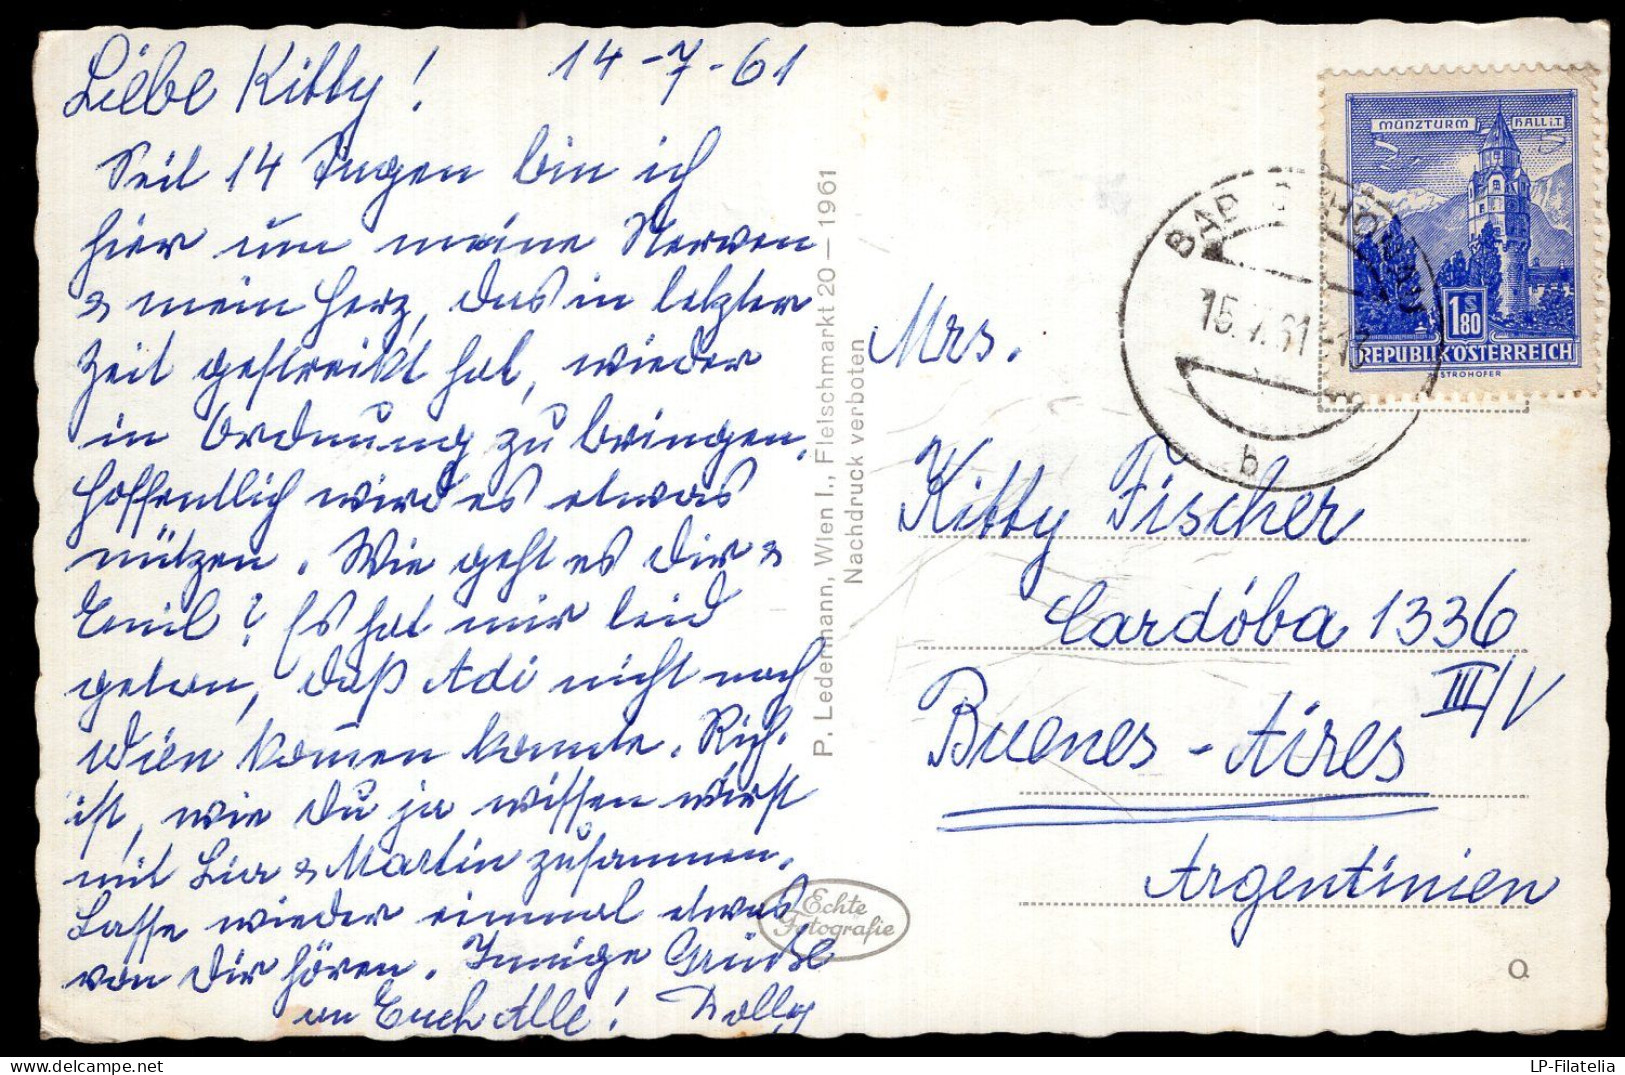 Liebe Kitty! 14-7-61
Seit 14 Tagen bin ich
hier um meine Nerven
& mein Herz, das in letzter
Zeit gestreikt hat, wieder
in Ordnung zu bringen.
Hoffentlich wird es etwas
nützen. Wie geht es Dir &
Emil? Es hat mir leid
getan, daß Adi nicht nach
Wien komen konnte. Rich.
ist, wie Du ja wissen wirst
mit Lia & Martin zusammen.
Lasse wieder einmal etwas
von Dir hören. Innige Grüße
an Euch Alle! Dolly
P. Ledermann, Wien I., Fleischmarkt 20 — 1961
Nachdruck verboten
Echte
Fotografie
MÜNZTURM HALL i.T.
1 S 80
REPUBLIK ÖSTERREICH
STROHOFER
15.7.61
b
Mrs.
Kitty Fischer
Cardóba 1336
III/V
Buenes-Aires
Argentinien
Q
LP-Filatelia